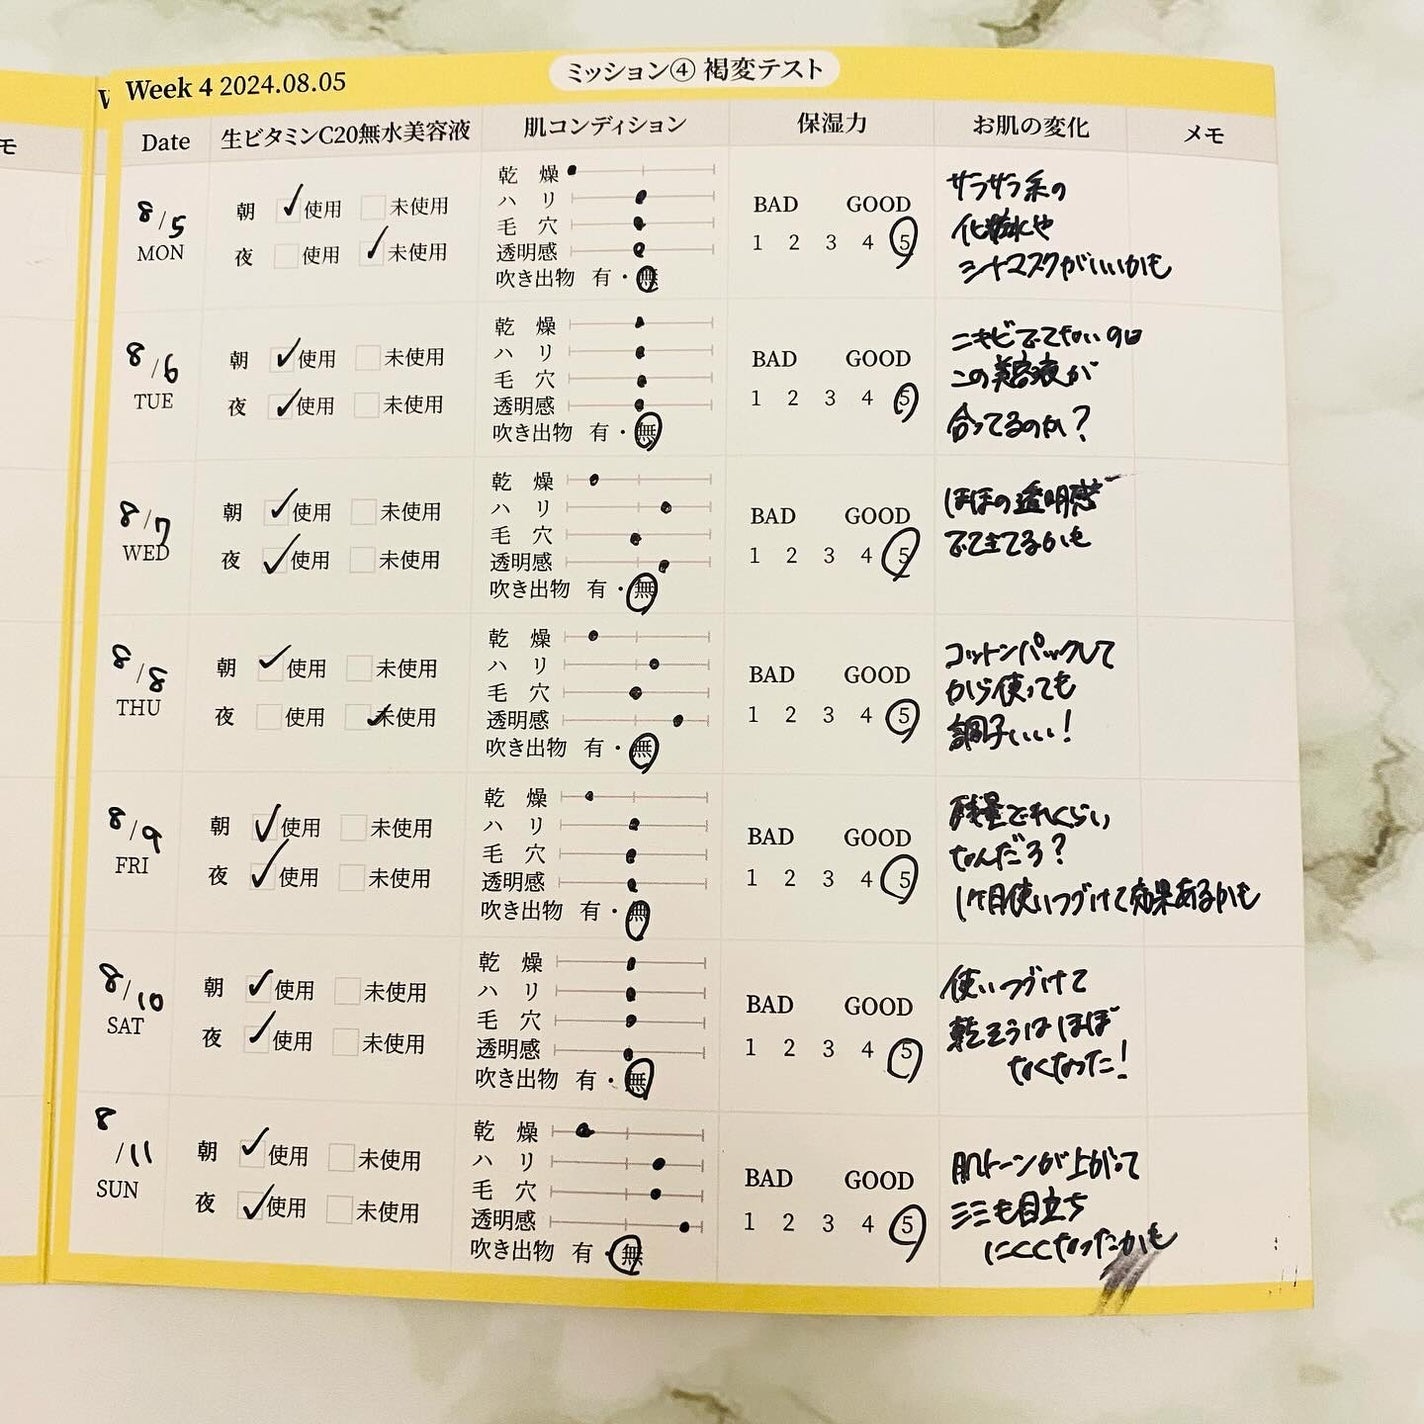 モ
Week 4 2024.08.05
ミッション④ 褐変テスト
Date 生ビタミンC20無水美容液 肌コンディション 保湿力 お肌の変化 メモ
8/5
MON
朝 使用 未使用
夜 使用 未使用
乾 燥
ハ リ
毛 穴
透明感
吹き出物 有・無
BAD GOOD
1 2 3 4 5
サラサラ系の
化粧水や
シートマスクがいいかも
8/6
TUE
朝 使用 未使用
夜 使用 未使用
乾 燥
ハ リ
毛 穴
透明感
吹き出物 有・無
BAD GOOD
1 2 3 4 5
ニキビでてないのは
この美容液が
合ってるのか?
8/7
WED
朝 使用 未使用
夜 使用 未使用
乾 燥
ハ リ
毛 穴
透明感
吹き出物 有・無
BAD GOOD
1 2 3 4 5
ほほの透明感
でてきてるかも
8/8
THU
朝 使用 未使用
夜 使用 未使用
乾 燥
ハ リ
毛 穴
透明感
吹き出物 有・無
BAD GOOD
1 2 3 4 5
コットンパックして
から使っても
調子いい!
8/9
FRI
朝 使用 未使用
夜 使用 未使用
乾 燥
ハ リ
毛 穴
透明感
吹き出物 有・無
BAD GOOD
1 2 3 4 5
残量どれくらい
なんだろ?
1ヶ月使いつづけて効果あるかも
8/10
SAT
朝 使用 未使用
夜 使用 未使用
乾 燥
ハ リ
毛 穴
透明感
吹き出物 有・無
BAD GOOD
1 2 3 4 5
使いつづけて
乾そうはほぼ
なくなった!
8/11
SUN
朝 使用 未使用
夜 使用 未使用
乾 燥
ハ リ
毛 穴
透明感
吹き出物 有・無
BAD GOOD
1 2 3 4 5
肌トーンが上がって
シミも目立ち
にくくなったかも